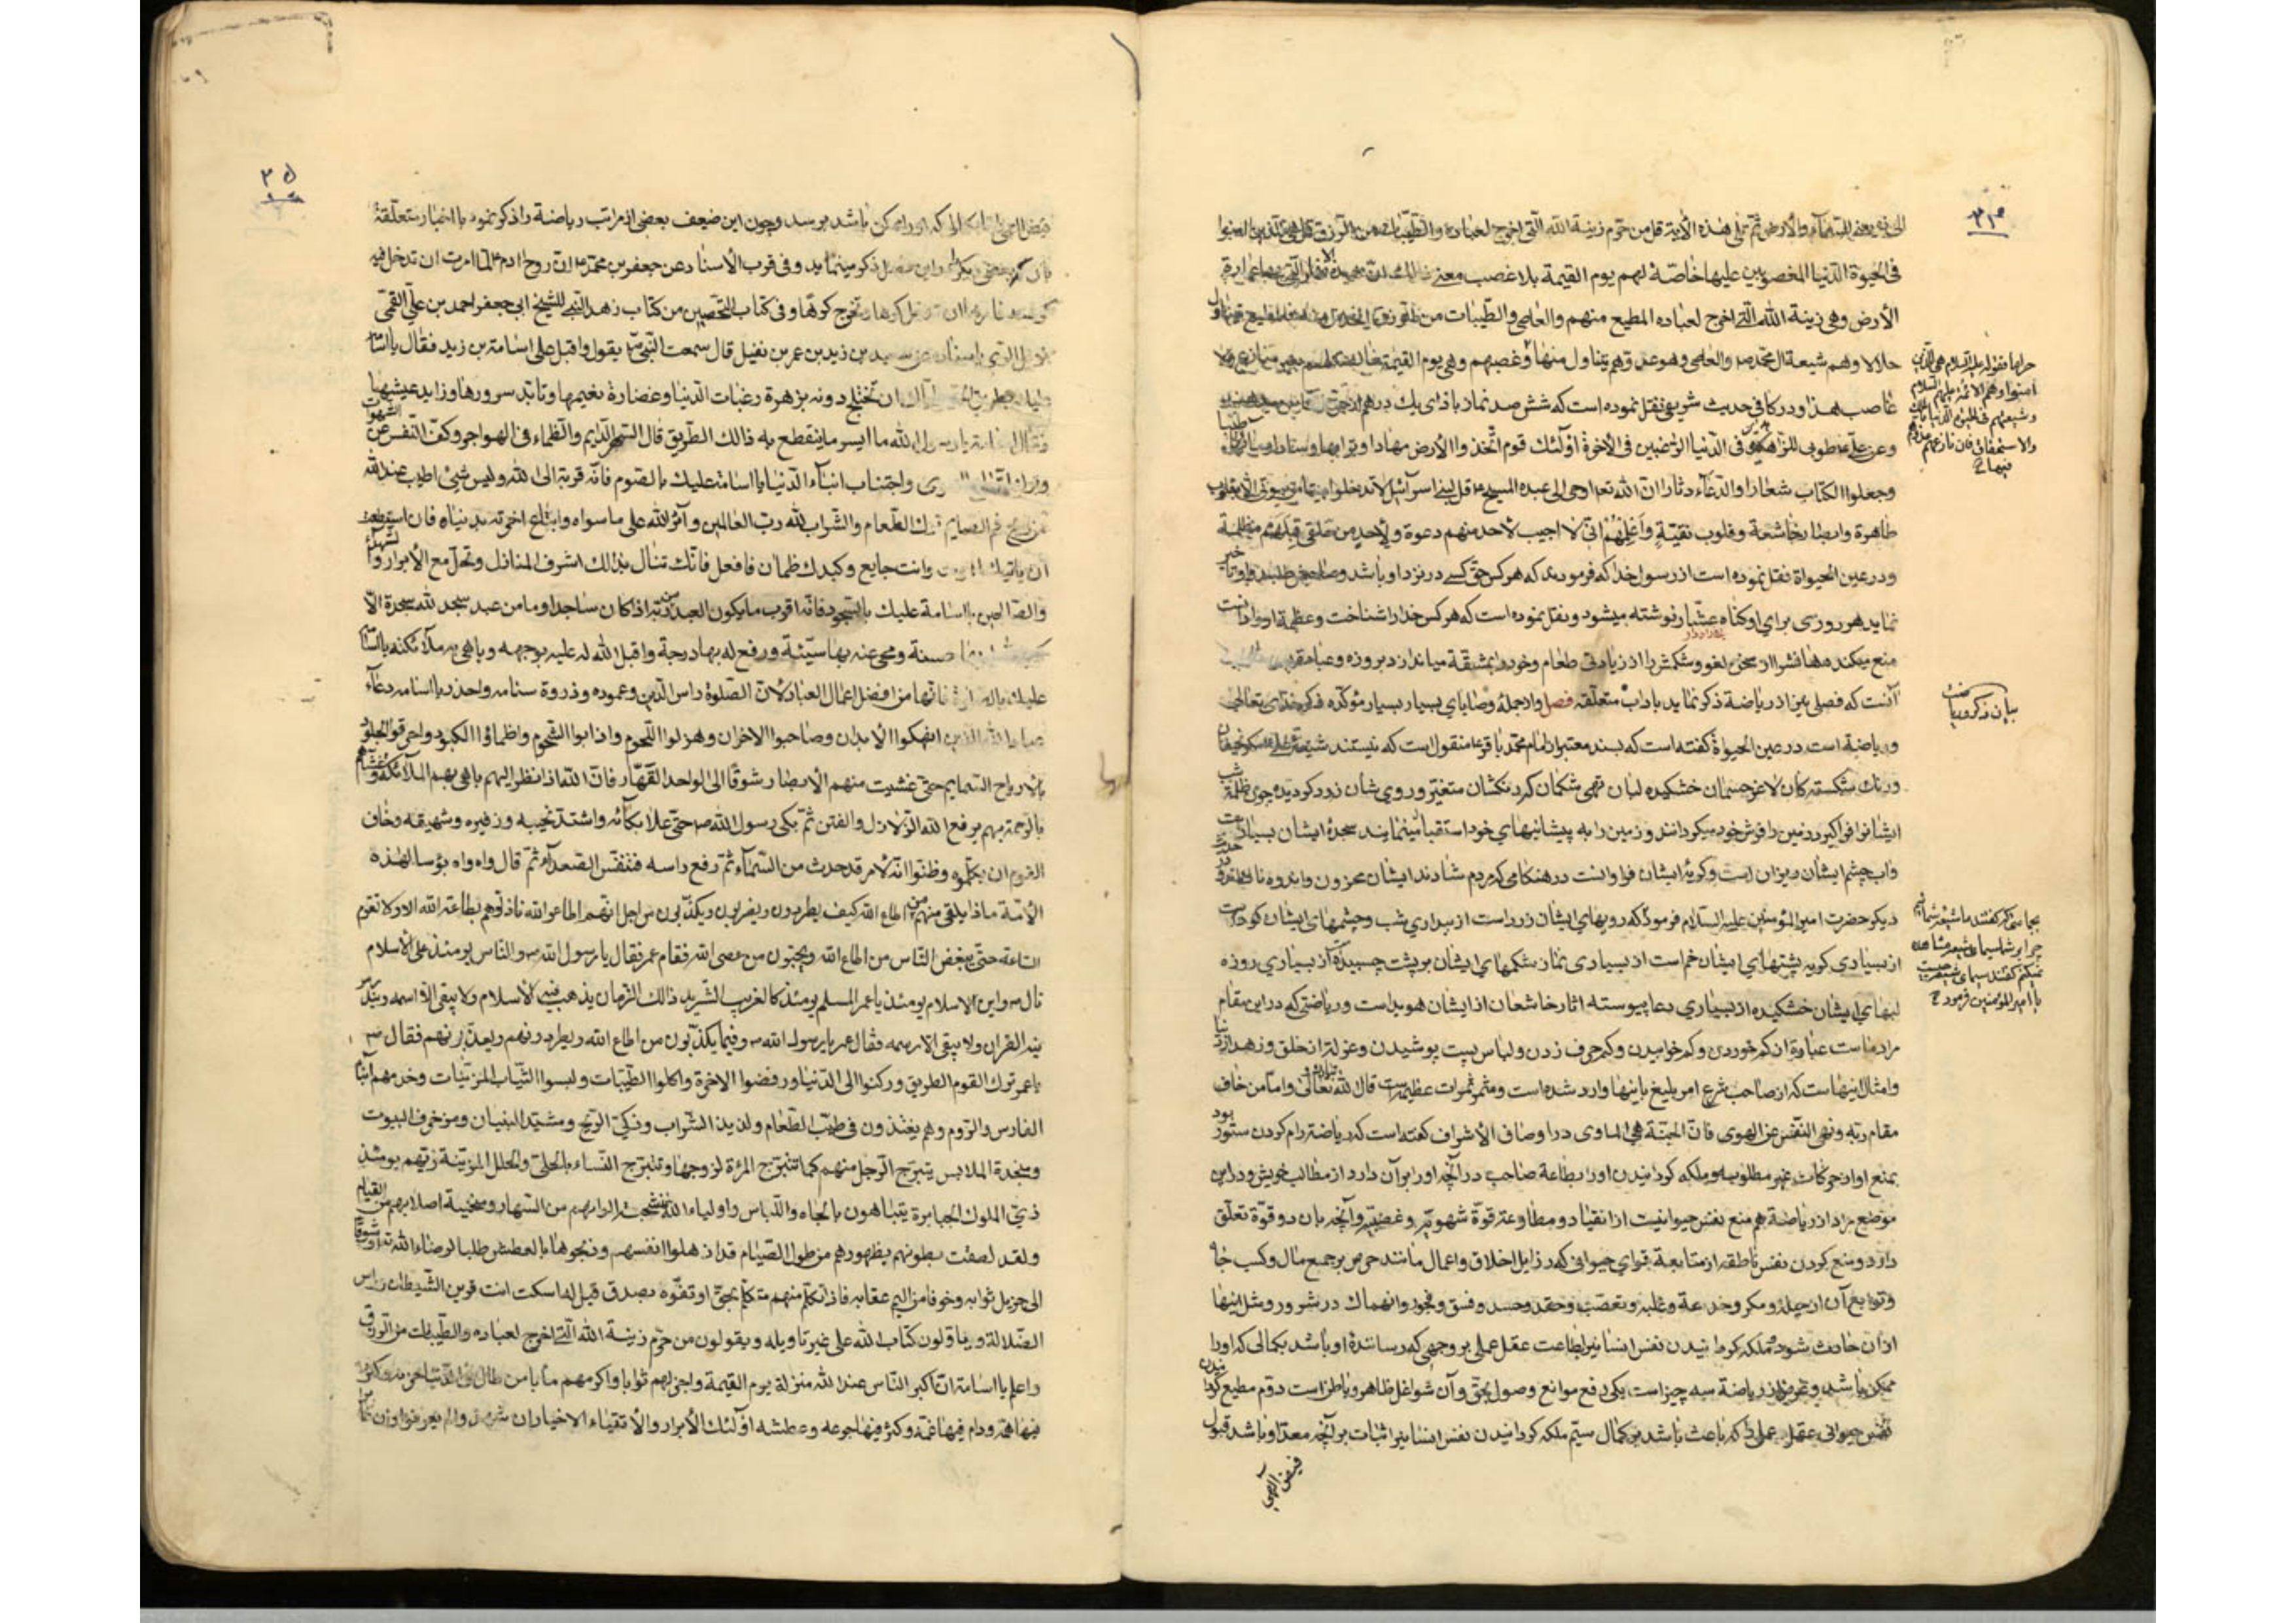 الی ذی یعنی السمآء والأرض ثم تلی هذه الأیة قل من حرّم زینة الله الّتی اخرج لعباده والطّیّبات من الرّزق قل هی للّذین امنوا
فی الحیوة الدّنیا المغصوبین علیها خاصّة لهم یوم القیمة بلا غصب معنی
الأرض وهی زینة الله الّتی اخرج لعباده المطیع منهم والعاصی والطّیبات من
حلالا وهم شیعة ال محمّد ص والعاصی وهو عدوّهم یتناول منها وغصبهم وهی یوم القیمة
غاصب هذا ودر کافی حدیث شریفی نقل نموده است که شش صد نماز باذای یك درهم
وعن علی ع طوبی للزّاهدین فی الدّنیا الرّاغبین فی الاخرة اولئك قوم اتّخذوا الأرض مهادا وترابها وسادا
وجعلوا الکتاب شعارا والدّعآء دثارا انّ الله تعا اوحی الی عبده المسیح ع قل لبنی اسرآئیل لا تدخلوا بیتا من بیوتی الّا بقلوب
طاهرة وابصار خاشعة وقلوب نقیّة واعلمهم انّی لا اجیب لأحد منهم دعوة ولأحد من خلقی قبلهم مظلمة
ودر عین الحیواة نقل نموده است از رسول خدا که فرمودند که هر کس حق کسی در نزد او باشد وصاحبش طلبد واو تاخیر
نماید هر روزی برای او کناه عشّار نوشته میشود ونقل نموده است که هر کس خدا را شناخت وعظمة او را دانست
منع میکند دهانش را از سخن لغو وشکمش را از زیادتی طعام وخود را بمشقّة میاندازد بروزه وعبادة
آنست که فصلی نیز از ریاضة ذکر نماید باداب متعلّقه فصل واز جملهٔ وصایای بسیار بسیار مؤکّده ذکر خدای تعالی
وریاضة است در عین الحیوة کفته است که بسند معتبر از امام محمّد باقر ع منقول است که نیستند شیعهٔ علی ع مکر نحیفان
ورنك شکسته کان لاغر جسمان خشکیده لبان تهی شکمان که رنکشان متغیّر وروی شان زرد کردیده چون ظلمة شب
ایشانرا فراکیرد زمین را فرش خود میکردانند وزمین را به پیشانیهای خود استقبال مینمایند سجدهٔ ایشان بسیار است
واب چشم ایشان ریزان است وکریهٔ ایشان فراوانست در هنکامی که مردم شادند ایشان محزون واندوه ناك
دیکر حضرت امیر المؤمنین علیه السّلام فرمود که رویهای ایشان زرد است از بیداری شب وچشمهای ایشان کور است
از بسیاری کریه پشتهای ایشان خم است از بسیاری نماز شکمهای ایشان بر پشت چسبیده از بسیاری روزه
لبهای ایشان خشکیده از بسیاری دعا پیوسته اثار خاشعان از ایشان هویداست وریاضتی که در این مقام
مراد ماست عبارة از کم خوردن وکم خوابیدن وکم حرف زدن ولباس پست پوشیدن وعزلة از خلق وزهد از دنیا
وامثال اینهاست که از صاحب شرع امر بلیغ باینها وارد شده است ومثمر ثمرات عظیمه است قال الله تعالی وامّا من خاف
مقام ربّه ونهی النّفس عن الهوی فانّ الجنّة هی الماوی در اوصاف الأشراف کفته است که ریاضة رام کردن ستور بود
بمنع او از حرکات غیر مطلوبه وملکه کردانیدن او را بطاعة صاحب در آنچه او را بر آن دارد از مطالب خویش ودر این
موضع مراد از ریاضة هم منع نفس حیوانیست از انقیاد ومطاوعة قوّة شهویّه وغضبیّه وآنچه بان دو قوّة تعلّق
دارد ومنع کردن نفس ناطقه از متابعة قوای حیوانی که رذایل اخلاق واعمال مانند حرص بر جمع مال وکسب جاه
وتوابع آن از حیلة ومکر وخدعة وغلبه وتعصّب وحقد وحسد وفسق وفجور وانهماك در شرور ومثل اینها
از ان حادث شود وملکه کردانیدن نفس انسانی را بطاعت عقل عملی بر وجهی که رسانندهٔ او باشد بکمالی که او را
ممکن باشد وغرض از ریاضة سه چیز است یکی دفع موانع وصول بحق وآن شواغل ظاهر وباطن است دوّم مطیع کردانیدن
نفس حیوانی عقل عملی را که باعث باشد بر کمال سیّم ملکه کردانیدن نفس انسانی را ثبات بر آنچه معدّ او باشد قبول
فیض الهی
حرامها
امنوا وهم الائمّة علیهم السلام
وشیعتهم فی الحیوة الدنیا
والاستحقاق فان نازعهم
فیها ح
بیان ذکر ریاضت
بجماعتی که کفتند ما شیعه شمائیم
چرا بر شما سیمای شیعه مشاهده
نمیکنم کفتند سیمای شیعه چیست
یا امیر المؤمنین فرمود ح
۳۵
فیض الهی را که او را ممکن باشد برسد وچون این ضعیف بعضی از مراتب ریاضة را ذکر نموده با اخبار متعلّقة
ذکر مینماید وفی قرب الأسناد عن جعفر بن محمّد ع انّ روح ادم ع لمّا امرت ان تدخل فیه
وتخرج کرها وفی کتاب التحصین من کتاب زهد النّبی للشّیخ ابی جعفر احمد بن علیّ القمّی
بن زید بن عمر بن نفیل قال سمعت النّبی ص یقول واقبل علی اسامة بن زید فقال یا اسامة
علیك بطریق ان تختلج دونه بزهرة رغبات الدّنیا وغضارة نعیمها وتائد سرورها وزاید عیشها
فقال اسامة یا رسول الله ما ایسر ما ینقطع به ذالك الطّریق قال السّهر الدّایم والظّماء فی الهواجر وکفّ النّفس عن الشهوات
واجتناب ابنآء الدّنیا یا اسامة علیك بالصّوم فانّه قربة الی الله ولیس شیئ اطیب عند الله
من ریح فم الصّایم ترك الطّعام والشّراب لله ربّ العالمین وآثر الله علی ما سواه وابتاع اخرته بدنیاه فان استطعت
ان یاتیك الموت وانت جایع وکبدك ظمآن فافعل فانّك تنال بذالك اشرف المنازل وتحلّ مع الأبرار والشهدآء
والصّالحین یا اسامة علیك بالسّجود فانّه اقرب ما یکون العبد من ربّه اذا کان ساجدا وما من عبد سجد لله سجدة الّا
حسنة ومحی عنه بها سیّئة ورفع له بها درجة واقبل الله له علیه بوجهه وباهی به ملآئکته یا اسامة
علیك بالصّلوة فانّها من افضل اعمال العباد لانّ الصّلوة راس الدّین وعموده وذروة سنامه واحذر یا اسامه دعآء
عباد الله الّذین انهکوا الأبدان وصاحبوا الاحزان وهزلوا اللّحوم واذابوا الشّحوم واظمأوا الکبود واحرقوا الجلود
بالأریاح السّمایم حتّی غشیت منهم الأبصار شوقا الی الواحد القهّار فانّ الله اذا نظر الیهم باهی بهم الملآئکة وغشّاهم
بالرّحمة بهم یرفع الله الزّلازل والفتن ثمّ بکی رسول الله ص حتّی علا بکآئه واشتدّ نحیبه وزفیره وشهیقه وخاف
القوم ان یکلّموه وظنّوا انّه لأمر قد حدث من السّمآء ثمّ رفع راسه فتنفّس الصّعدآء ثمّ قال واه واه بؤسا لهذه
الأمّة ماذا یلقی منهم من اطاع الله کیف یطردون ویضربون ویکذّبون من اجل انّهم اطاعوا الله فاذلّوهم بطاعة الله الا ولا تقوم
السّاعة حتّی یبغض النّاس من اطاع الله ویحبّون من عصی الله فقام عمر فقال یا رسول الله ص والنّاس یومئذ علی الاسلام
قال ص واین الاسلام یومئذ یا عمر المسلم یومئذ کالغریب الشّرید ذالك الزّمان یذهب فیه الأسلام ولا یبقی الّا اسمه ویندرس
فیه القران ولا یبقی الّا رسمه فقال عمر یا رسول الله ص وفیما یکذّبون من اطاع الله ویطردونهم ویعذّبونهم فقال ص
یا عمر ترك القوم الطریق ورکنوا الی الدّنیا ورفضوا الاخرة واکلوا الطّیّبات ولبسوا الثّیاب المزیّنات وخدمهم ابنآء
الفارس والرّوم وهم یغتذون فی طیّب الطّعام ولذیذ الشّراب وذکیّ الرّیح ومشیّد البنیان ومزخرف البیوت
ومنجدة الملابس یتبرّج الرّجل منهم کما تتبرّج المرئة لزوجها وتتبرّج النّساء بالحلیّ والحلل المزیّنة زیّهم یومئذ
زیّ الملوك الجبابرة یتباهون بالجاه واللّباس واولیاء الله شحبت الوانهم من السّهار ومنحنیة اصلابهم من القیام
ولقد لصقت بطونهم بظهورهم من طول الصّیام قد اذهلوا انفسهم وذبحوها بالعطش طلبا لرضاء الله تعا وشوقا
الی جزیل ثوابه وخوفا من الیم عقابه فاذا تکلّم منهم متکلّم بحقّ او تفوّه بصدق قیل له اسکت انت قرین الشّیطان وراس
الضّلالة ویتاوّلون کتاب الله علی غیر تاویله ویقولون من حرّم زینة الله الّتی اخرج لعباده والطّیّبات من الرّزق
واعلم یا اسامة انّ اکبر النّاس عند الله منزلة یوم القیمة واجزلهم ثوابا واکرمهم مآبا من طال فی الدّنیا حزنه وکثر
فیها همّه ودام فیها غمّه وکثر فیها جوعه وعطشه اولئك الأبرار والأتقیاء الاخیار ان